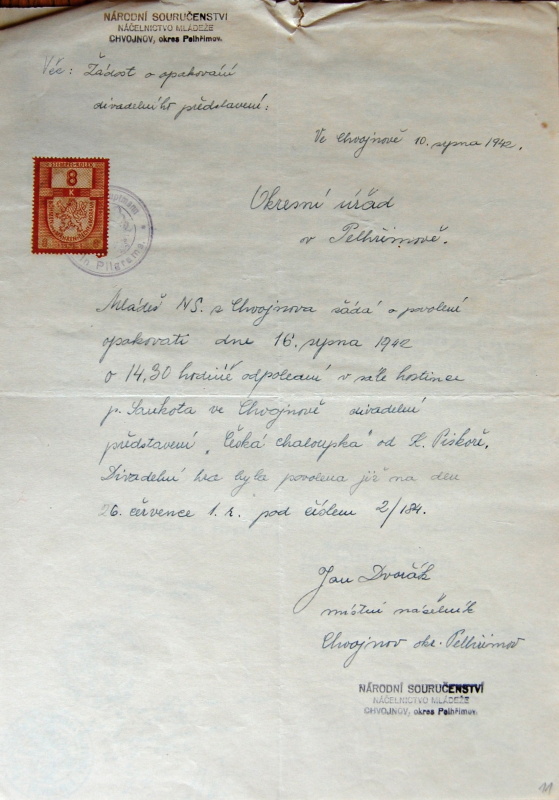 NÁRODNÍ SOURUČENSTVÍ
NÁČELNICTVO MLÁDEŽE
CHVOJNOV, okres Pelhřimov.
Věc: Žádost o opakování
divadelního představení:
Ve Chvojnově 10. srpna 1942.
8
K
Okresní úřad
v Pelhřimově.
in Pilgrams
Mládež NS. z Chvojnova žádá o povolení
opakovati dne 16. srpna 1942
o 14,30 hodině odpolední v sále hostince
p. Saukota ve Chvojnově divadelní
představení „Česká chaloupka" od K. Piskoře.
Divadelní hra byla povolena již na den
26. července l. r. pod číslem 2/184.
Jan Dvořák
místní náčelník
Chvojnov okr. Pelhřimov
NÁRODNÍ SOURUČENSTVÍ
NÁČELNICTVO MLÁDEŽE
CHVOJNOV, okres Pelhřimov.